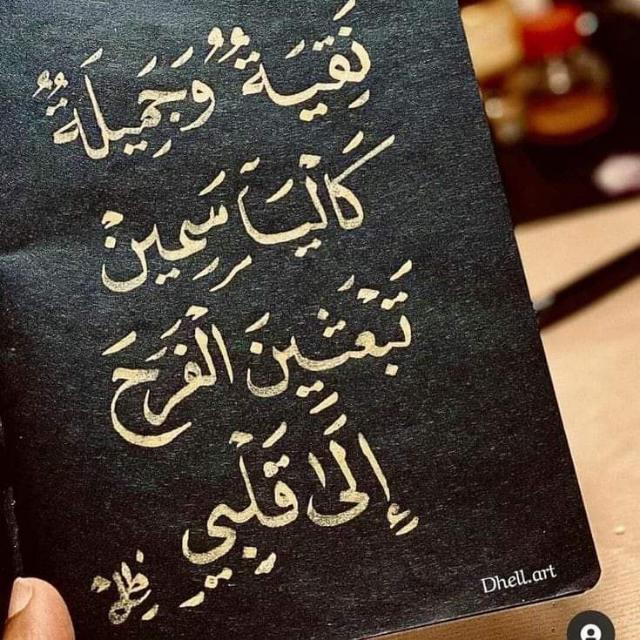 نَقِيَةٌ وَجَمِيلَةٌ
كَاليَاسَمِينْ
تَبْعَثِينَ الْفَرَحَ
إِلَىٰ قَلْبِي
ظِلْ
Dhell.art